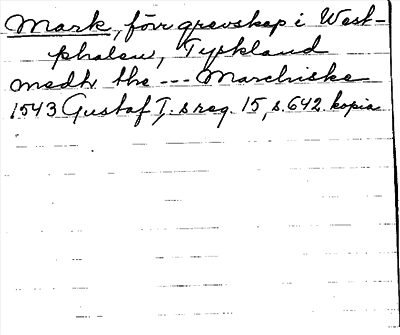 Mark, förr grevskap i West-
phalen, Tyskland
medh the --- Marchiske
1543 Gustaf I:s reg. 15, s. 642. kopia